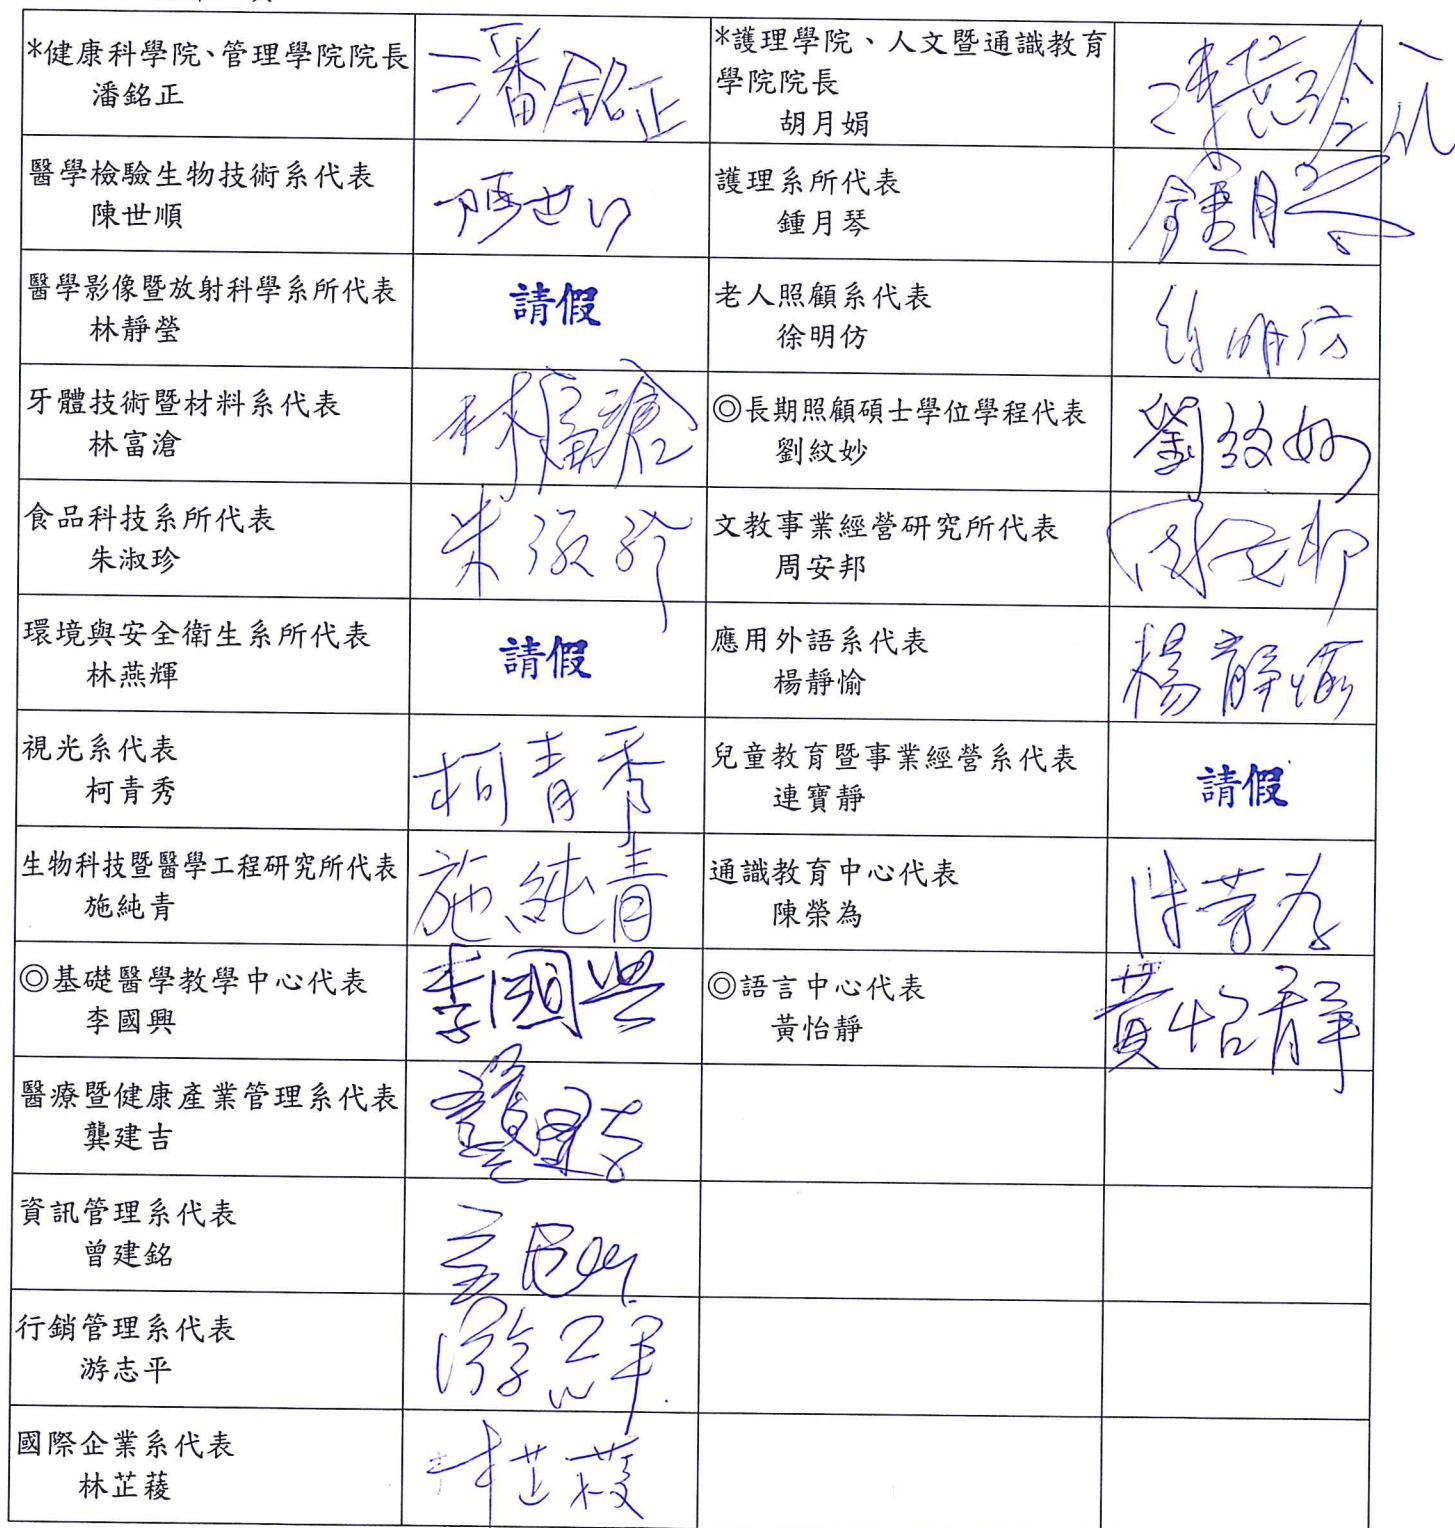 *健康科學院、管理學院院長
潘銘正
潘銘正
*護理學院、人文暨通識教育
學院院長
胡月娟
醫學檢驗生物技術系代表
陳世順
護理系所代表
鍾月琴
醫學影像暨放射科學系所代表
林靜瑩
請假
老人照顧系代表
徐明仿
徐明仿
牙體技術暨材料系代表
林富滄
林富滄
◎長期照顧碩士學位學程代表
劉紋妙
劉紋妙
食品科技系所代表
朱淑珍
朱淑珍
文教事業經營研究所代表
周安邦
周安邦
環境與安全衛生系所代表
林燕輝
請假
應用外語系代表
楊靜愉
楊靜愉
視光系代表
柯青秀
柯青秀
兒童教育暨事業經營系代表
連寶靜
請假
生物科技暨醫學工程研究所代表
施純青
施純青
通識教育中心代表
陳榮為
◎基礎醫學教學中心代表
李國興
李國興
◎語言中心代表
黃怡靜
黃怡靜
醫療暨健康產業管理系代表
龔建吉
龔建吉
資訊管理系代表
曾建銘
行銷管理系代表
游志平
游志平
國際企業系代表
林芷薐
林芷薐